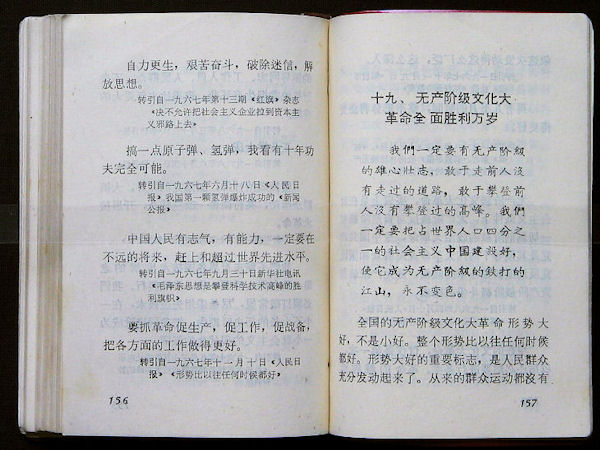 自力更生，艰苦奋斗，破除迷信，解
放思想。
转引自一九六七年第十三期《红旗》杂志
《决不允许把社会主义企业拉到资本主
义邪路上去》
搞一点原子弹、氢弹，我看有十年功
夫完全可能。
转引自一九六七年六月十八日《人民日
报》我国第一颗氢弹爆炸成功的《新闻
公报》
中国人民有志气，有能力，一定要在
不远的将来，赶上和超过世界先进水平。
转引自一九六七年九月三十日新华社电讯
《毛泽东思想是攀登科学技术高峰的胜
利旗帜》
要抓革命促生产，促工作，促战备，
把各方面的工作做得更好。
转引自一九六七年十一月十日《人民日
报》《形势比以往任何时候都好》
156
十九、无产阶级文化大
革命全面胜利万岁
我們一定要有无产阶級
的雄心壮志，敢于走前人沒
有走过的道路，敢于攀登前
人沒有攀登过的高峰。我們
一定要把占世界人口四分之
一的社会主义中国建設好，
使它成为无产阶級的鉄打的
江山，永不变色。
全国的无产阶级文化大革命形势大
好，不是小好。整个形势比以往任何时候
都好。形势大好的重要标志，是人民群众
充分发动起来了。从来的群众运动都沒有
157